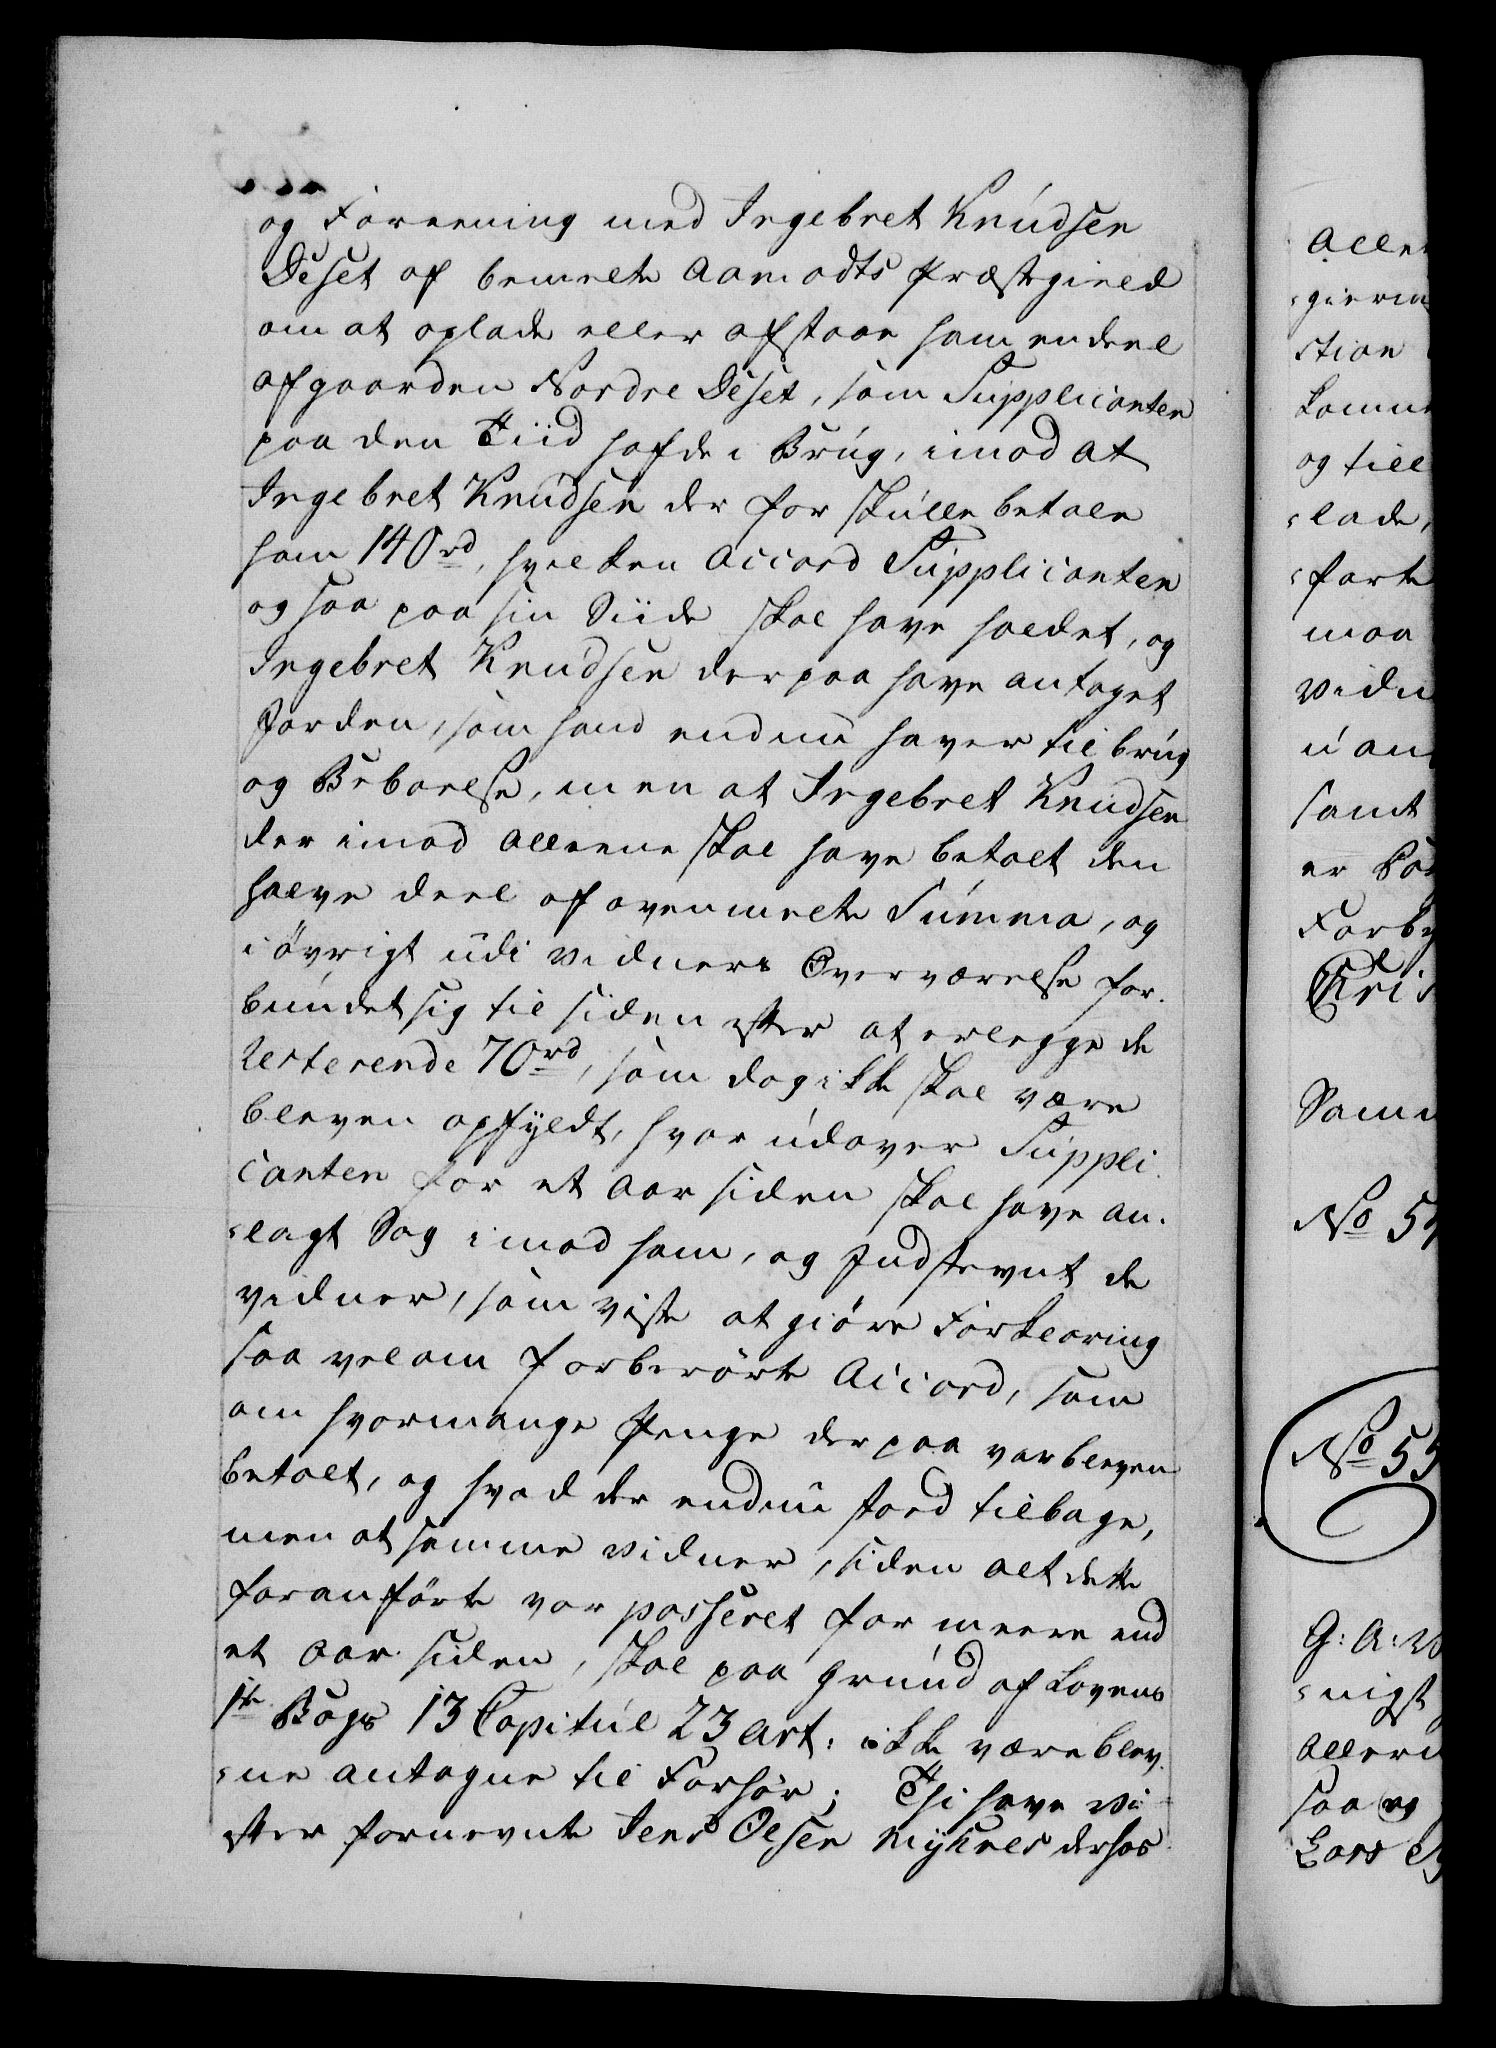 og Foreening med Ingebret Knudsen
Deset af bemelte Aamodts Præstegield
om at oplade eller afstaae ham endeel
af gaarden Nordre Deset, som Supplicanten
paa den Tiid hafde i Brug, imod at
Ingebret Knudsen der for skulle betale
ham 140 rd, hvilken Accord Supplicanten
og saa paa sin Siide skal have holdet, og
Ingebret Knudsen derpaa have antaget
Jorden, som hand endnu haver til brug
og Beboelse, men at Ingebret Knudsen
der imod alleene skal have betalt den
halve deel af ovenmelte Summa, og
i øvrigt udi vidners Overværelse for-
bundet sig til siden efter at erlegge de
resterende 70 rd, som dog ikke skal være
bleven opfyldt, hvor udover Suppli
canten for et Aar siden skal have an-
-lagt Sag imod ham, og Indstevnt de
vidner, som viste at giøre Forklaring
saa vel om forberørte Accord, som
om hvormange Penge derpaa var bleven
betalt, og hvad der endnu stoed tilbage,
men at samme vidner, siden alt dette
foranførte var passeret for meere end
et Aar siden, skal paa Grund af Lovens
1te Bogs 13 Capitul 23 Art: ikke være blev
-ne antagne til Forhør; Thi have vi
efter fornevnte Jens Olsen Nyhnes derhos
Aller
-gierin
ction
Comm
og till
-lade,
-forte
maa
vidn
u an
samt
er
Forby
Cris
Samm
No 5
No 55
G: A: W
-nigst
Allern
saa og
Lars